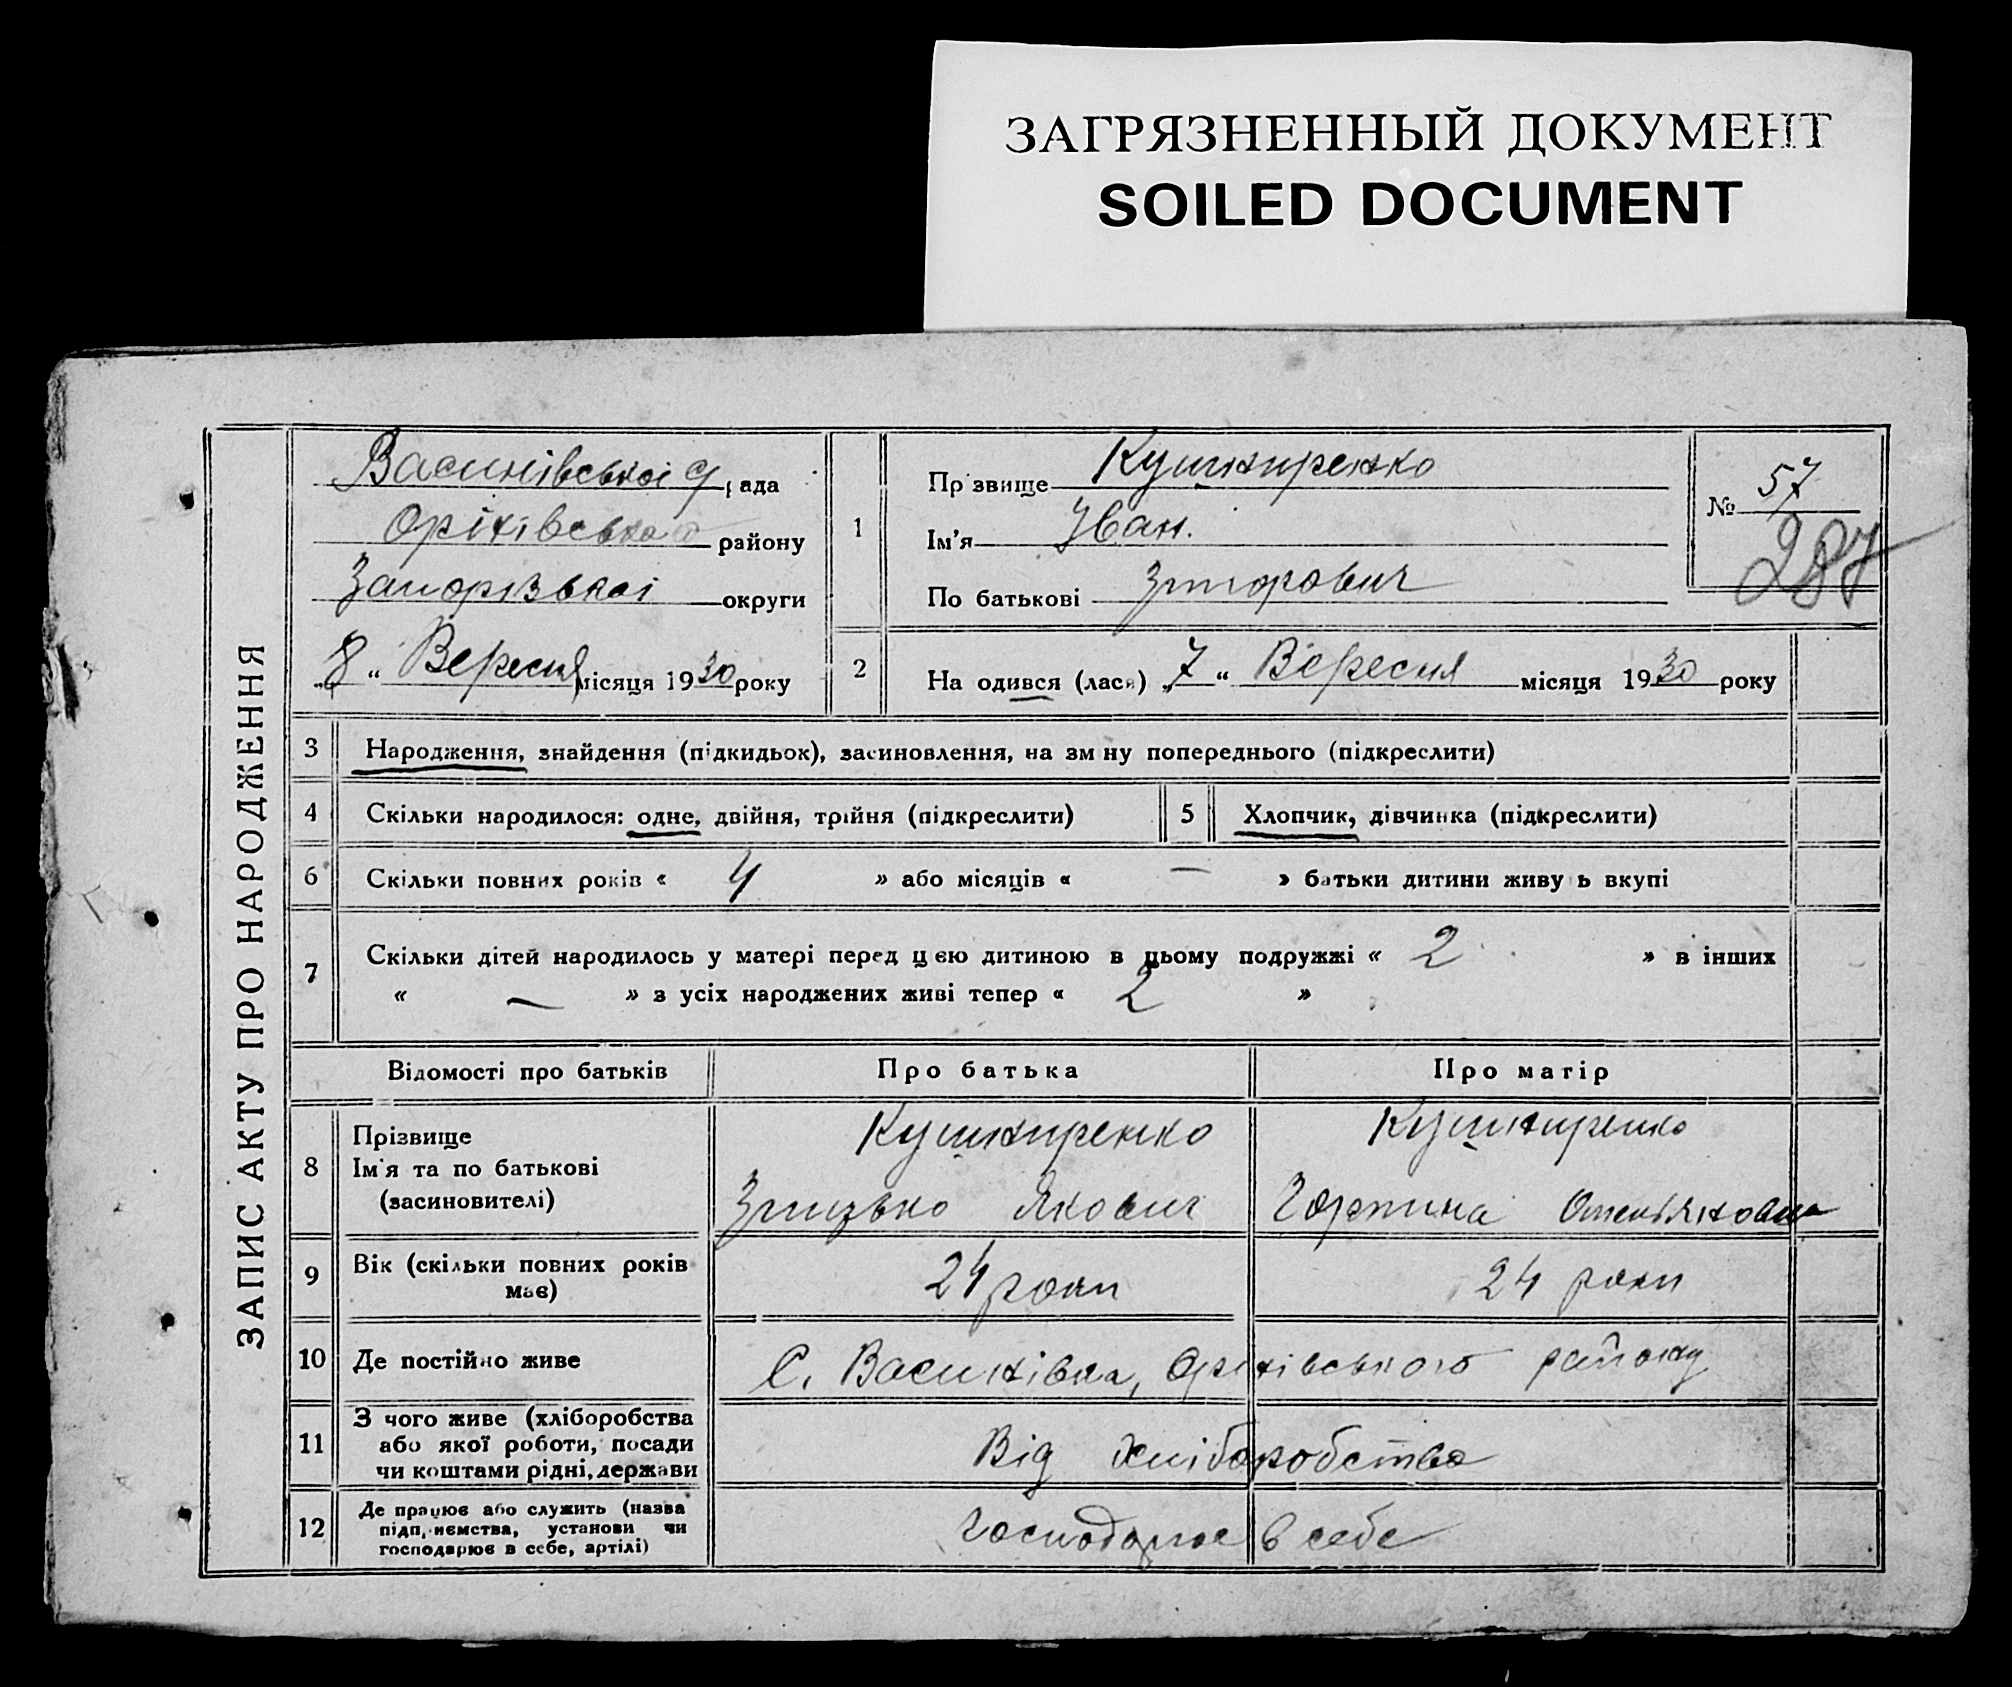 ЗАГРЯЗНЕННЫЙ ДОКУМЕНТ
SOILED DOCUMENT
ЗАПИС АКТУ ПРО НАРОДЖЕННЯ
Василівської с/рада
Оріхівського району
Запорізької округи
„8“ Вересня місяця 1930 року
1
Прізвище Кушниренко
Ім’я Іван.
По батькові
№ 57
287
2
На одився (лася) „7“ Вересня місяця 1930 року
3 Народження, знайдення (підкидьок), засиновлення, на зм ну попереднього (підкреслити)
4 Скільки народилося: одне, двійня, трійня (підкреслити) 5 Хлопчик, дівчинка (підкреслити)
6 Скільки повних років « 4 » або місяців « — » батьки дитини живу ь вкупі
7 Скільки дітей народилось у матері перед цією дитиною в цьому подружжі « 2 » в інших
« — » з усіх народжених живі тепер « 2 »
Відомості про батьків Про батька Про матір
8 Прізвище
Ім’я та по батькові
(засиновителі)
Кушниренко
Грицько Якович
Кушниренко
Горпина
9 Вік (скільки повних років
має)
24 роки
24 роки
10 Де постійно живе
С. Василівка, Оріхівського району
11 З чого живе (хліборобства
або якої роботи, посади
чи коштами рідні, держави
Від хліборобства
12 Де працює або служить (назва
підп,иємства, установи чи
господарює в себе, артілі)
Господарює в себе